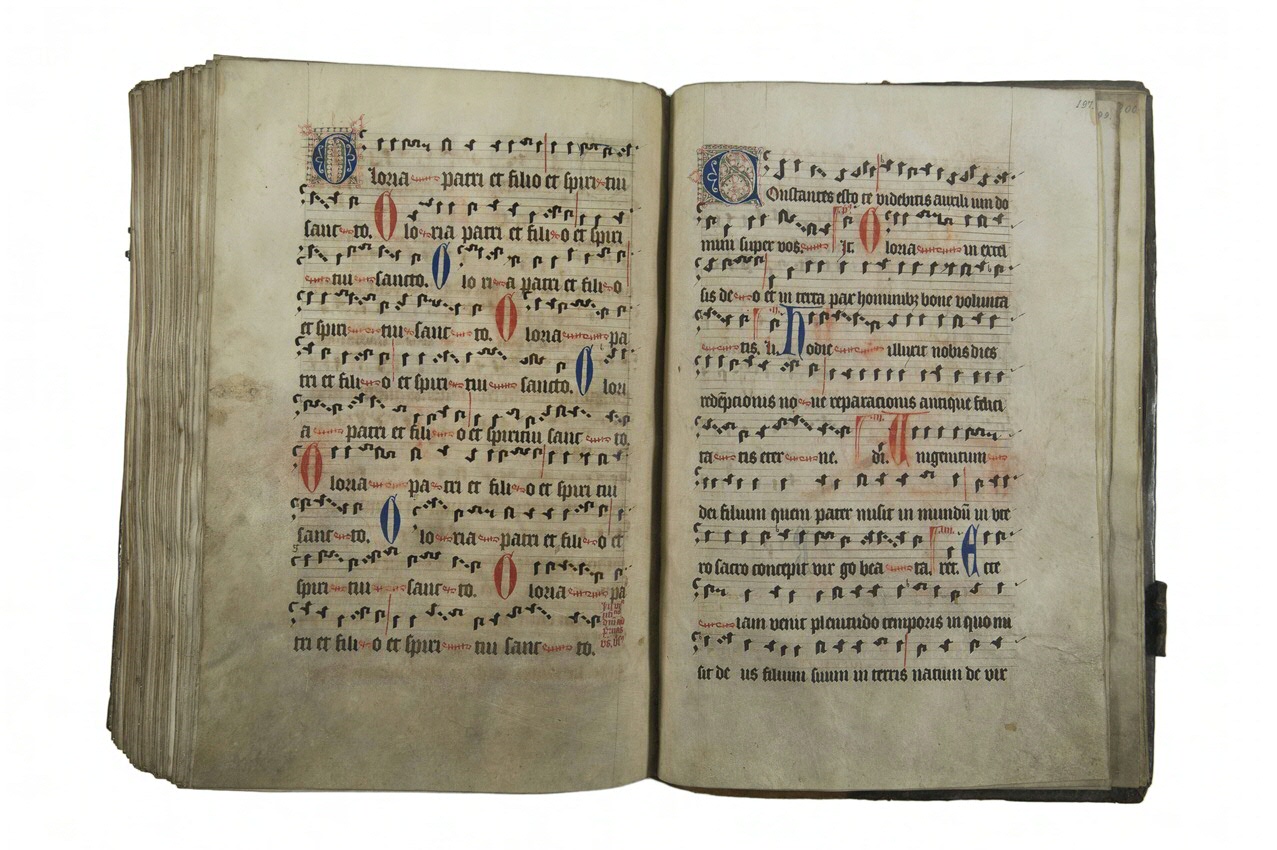 Gloria patri et filio et spiritui
sancto. Gloria patri et filio et spiri
tui sancto. Gloria patri et filio
et spiritui sancto. Gloria pa
tri et filio et spiritui sancto. Glori
a patri et filio et spiritui sancto.
Gloria patri et filio et spiritui
sancto. Gloria patri et filio et
spiritui sancto. Gloria pa
tri et filio et spiritui sancto.
197.
Constantes estote videbitis auxilium do
mini super vos. Gloria in excel
sis deo et in terra pax hominibꝫ bone volunta
tis. Hodie illuxit nobis dies
redēptionis noue reparacionis antique felici
tatis eterne. Unigenitum
dei filium quem pater misit in mundū in vte
ro sacro concepit virgo beata. Ecce
iam venit plenitudo temporis in quo mi
sit deus filium suum in terris natum de vir